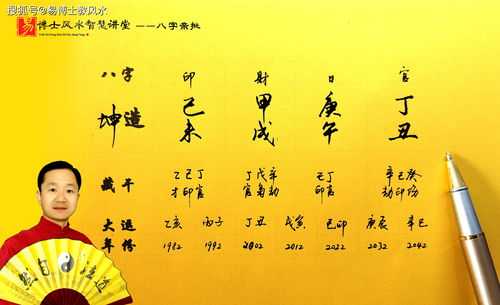 搜狐号@易博士教风水
易 博士风水智慧讲堂 ——八字亲批
八字 印 財 日 官
坤造 己未 甲戌 庚午 丁丑
藏干 乙己丁 丁戊辛 己丁 辛己癸
才印官 官枭劫 印官 劫印伤
大运 乙亥 丙子 丁丑 戊寅 己卯 庚辰 辛巳
年份 1982 1992 2002 2012 2022 2032 2042
然自法道